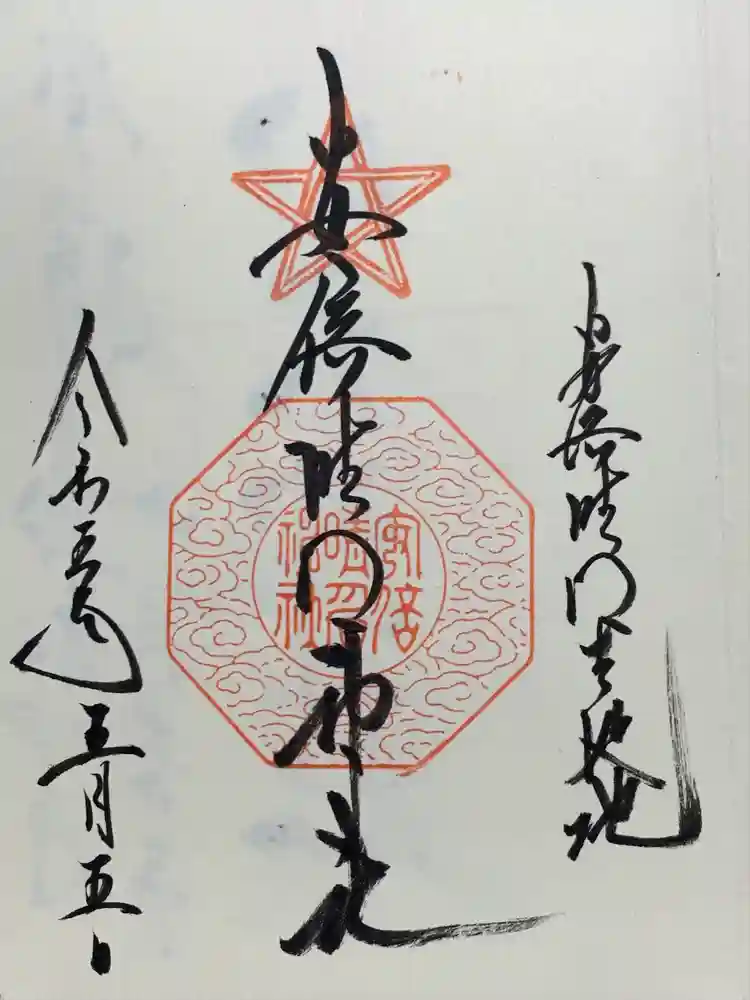 安倍晴明生誕地
安倍晴明神社
安倍
晴明
神社
令和五年五月五日